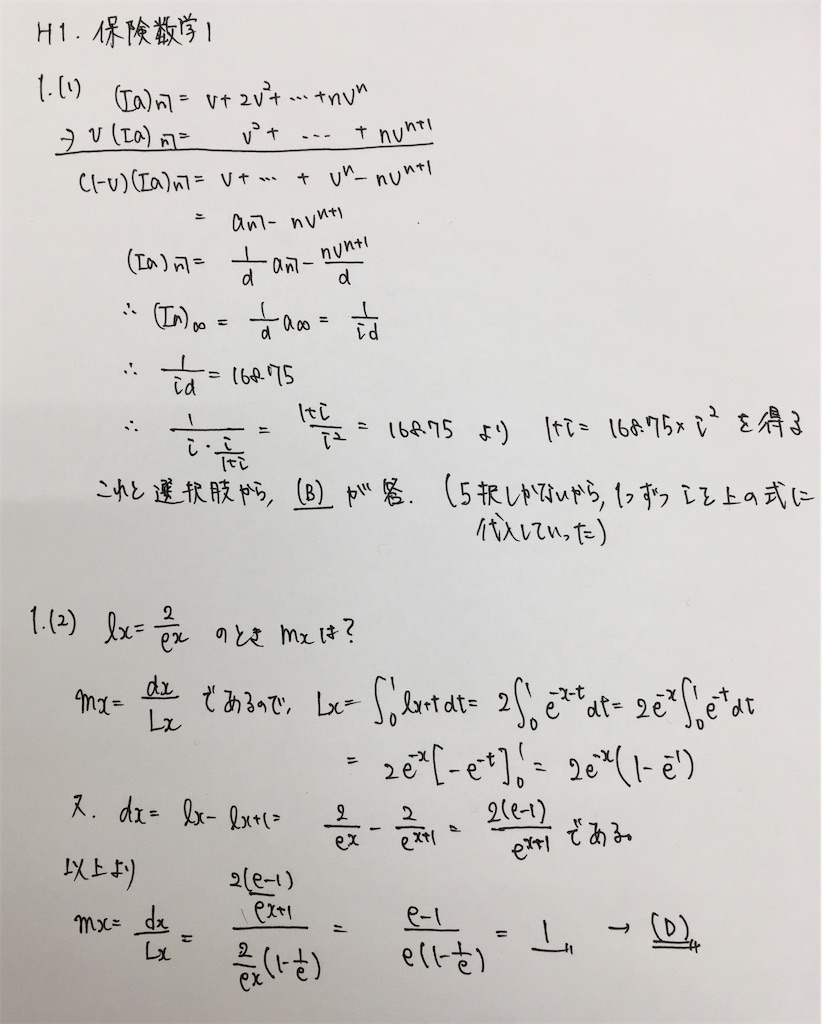 H1. 保険数学1
1.(1) (Ia)n̅| = v + 2v² + … + nvⁿ
→ v(Ia)n̅| = v² + … + nvⁿ⁺¹
(1-v)(Ia)n̅| = v + … + vⁿ - nvⁿ⁺¹
= an̅| - nvⁿ⁺¹
(Ia)n̅| = 1/d an̅| - nvⁿ⁺¹/d
∴ (Ia)∞ = 1/d a∞ = 1/id
∴ 1/id = 168.75
∴ 1/(i・i/(1+i)) = (1+i)/i² = 168.75 より 1+i = 168.75×i² を得る
これと選択肢から, (B) が答. (5択しかないから, 1つずつ i を上の式に
代入していった)
1.(2) lx = 2/eˣ のとき mxは?
mx = dx/Lx であるので, Lx = ∫₀¹ lx+t dt = 2∫₀¹ e⁻ˣ⁻ᵗ dt = 2e⁻ˣ∫₀¹ e⁻ᵗ dt
= 2e⁻ˣ[-e⁻ᵗ]₀¹ = 2e⁻ˣ(1-e⁻¹)
又. dx = lx - lx+1 = 2/eˣ - 2/eˣ⁺¹ = 2(e-1)/eˣ⁺¹ である。
以上より
mx = dx/Lx = (2(e-1)/eˣ⁺¹)/(2/eˣ(1-1/e)) = (e-1)/(e(1-1/e)) = 1 → (D)